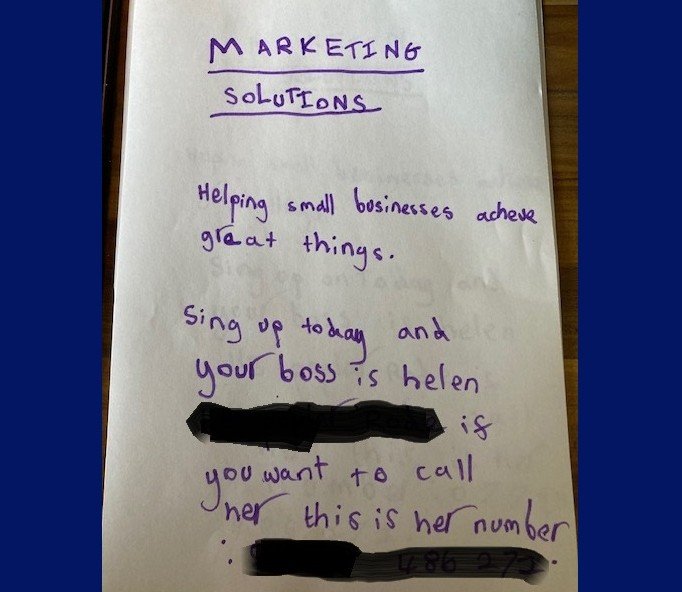 MARKETING
SOLUTIONS
Helping small businesses acheve
great things.
Sing up today and
your boss is helen
is
you want to call
her this is her number
: